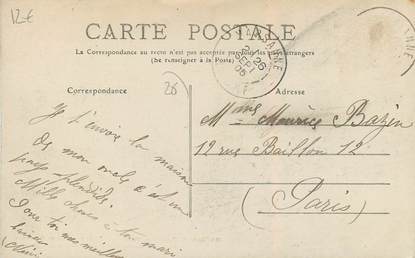 12 €
CARTE POSTALE
La Correspondance au recto n'est pas acceptée par tous les pays étrangers
(Se renseigner à la Poste)
Correspondance
Adresse
26
Je t'envoie la maison
de mon oncle c'est un
pays splendide.
Mille choses à ton mari
pour toi mes meilleurs
baisers
Mme Maurice Bazin
12 rue Baillon 12
(Paris)
26
SEPT
05
ENNE